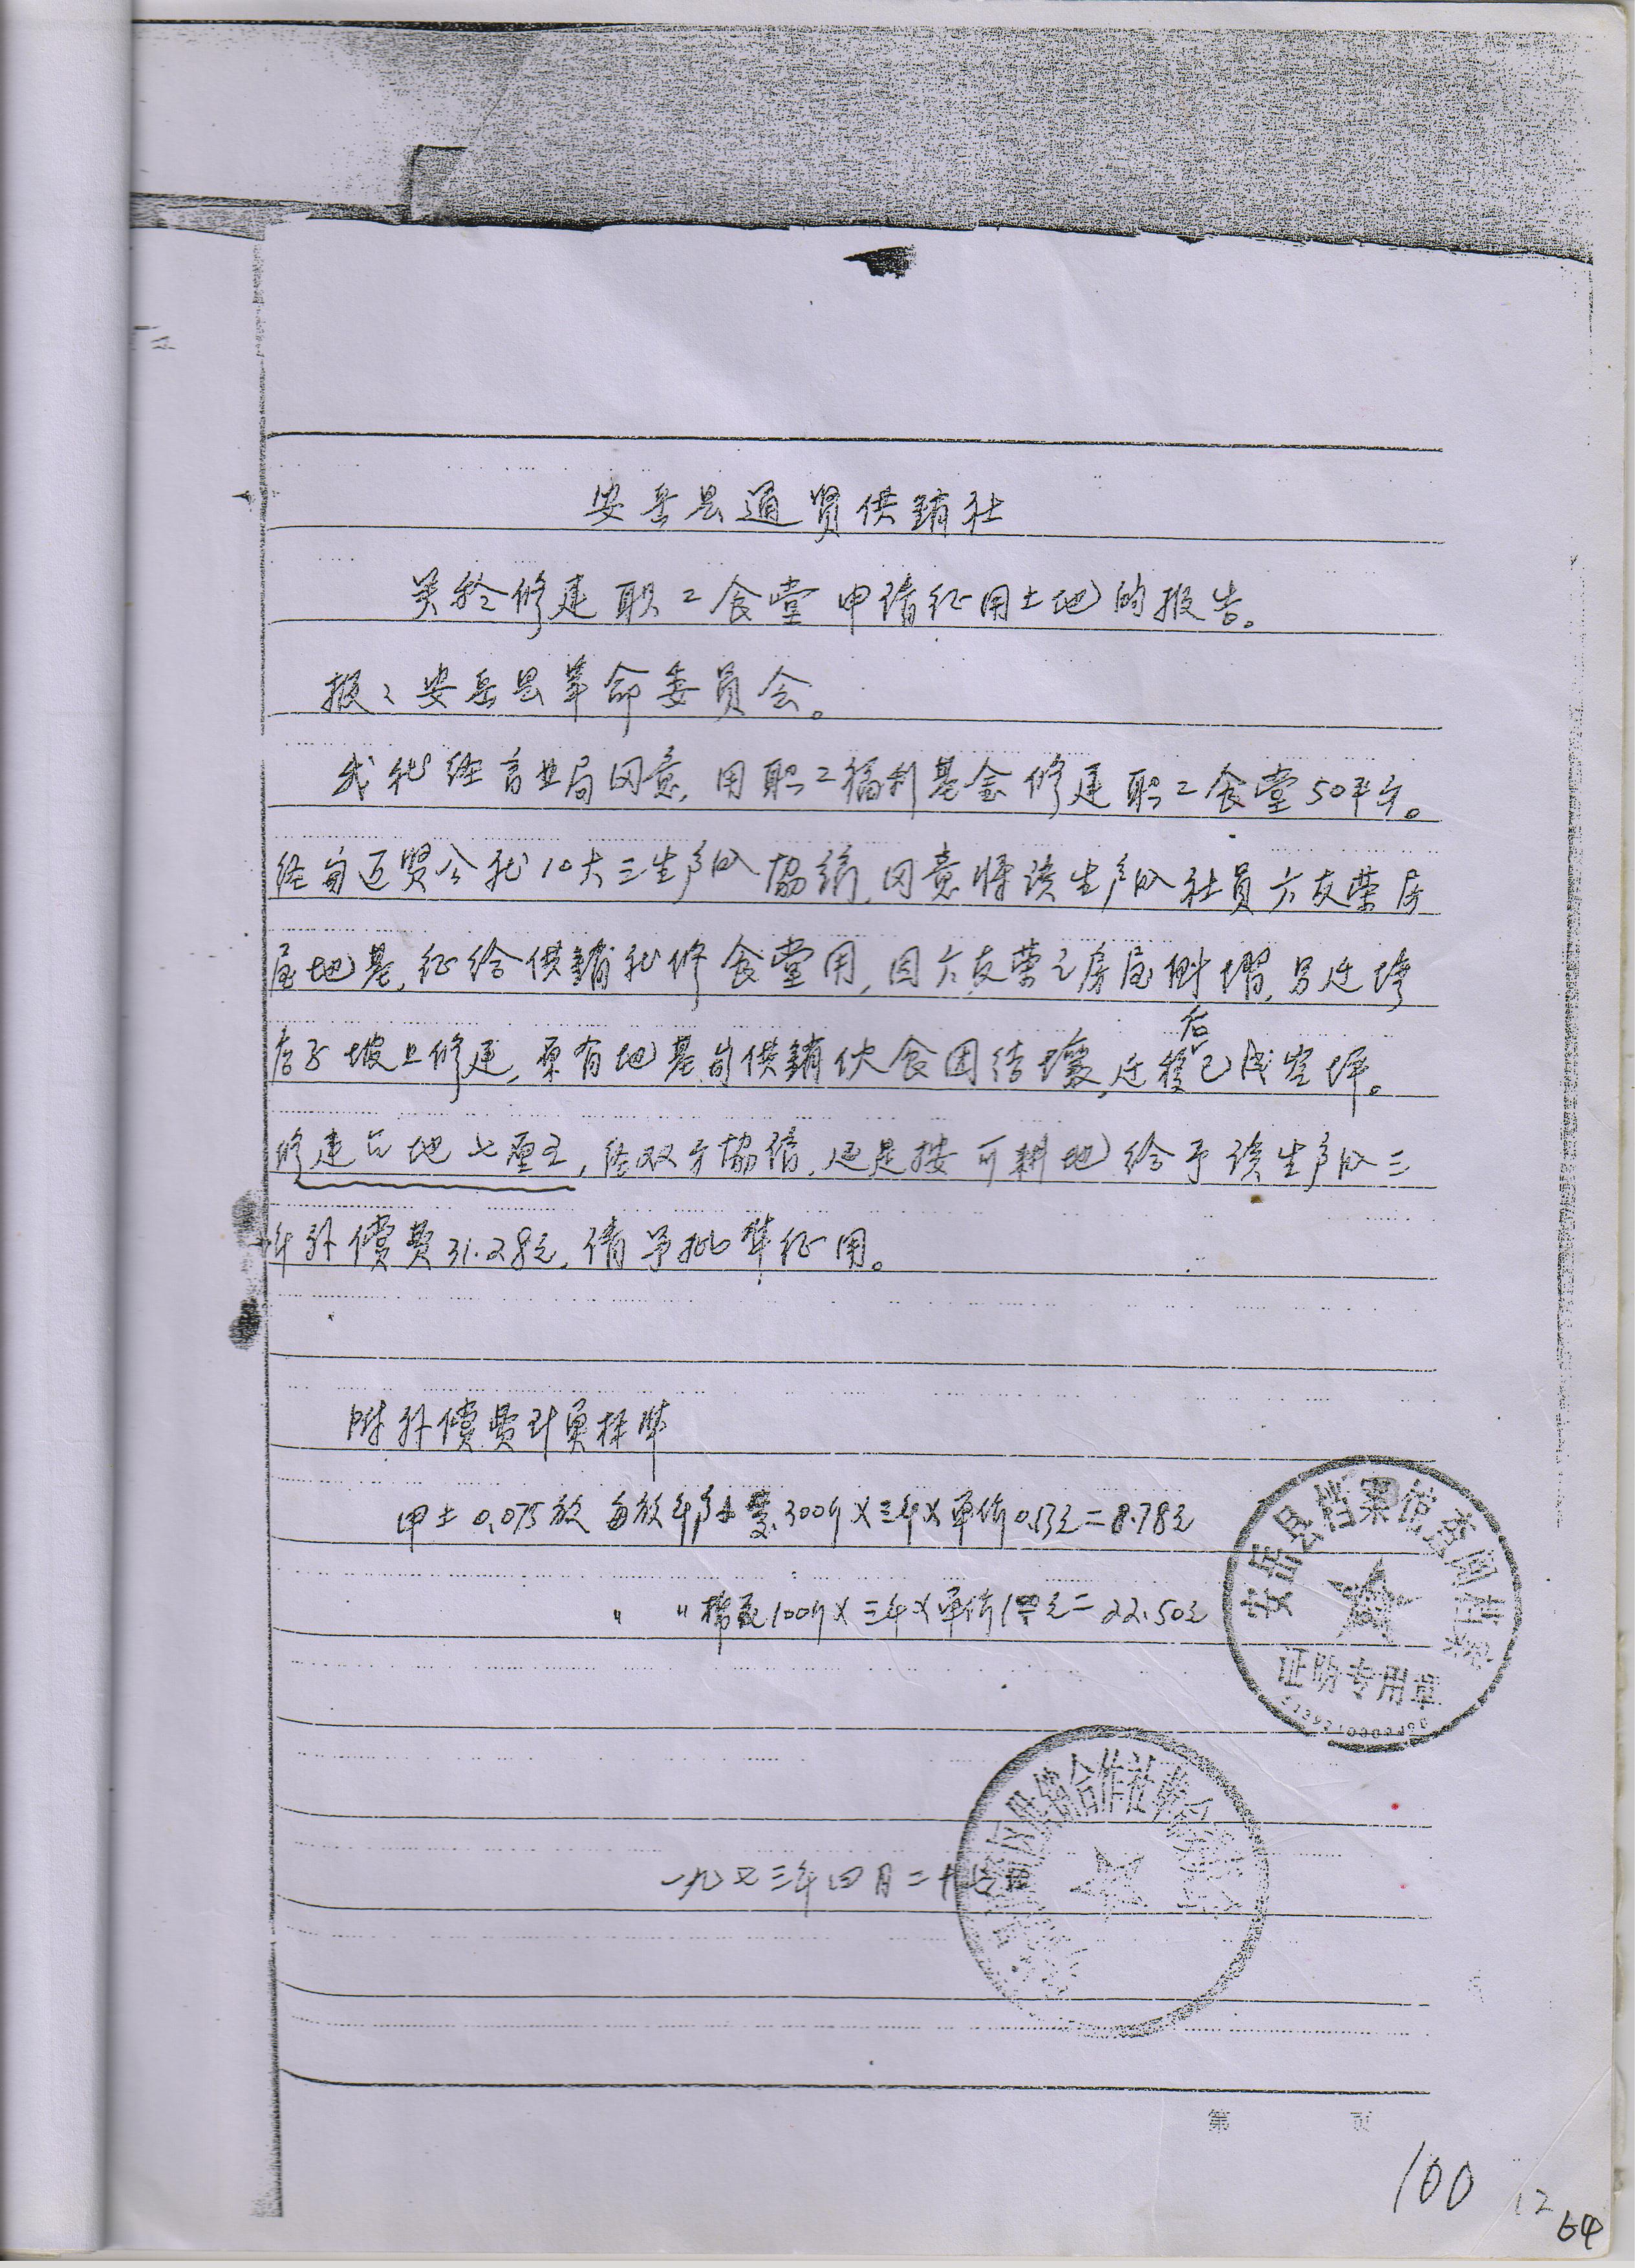 安岳县通贤供銷社
关於修建职工食堂申请征用土地的报告。
报：安岳县革命委员会。
我社经商业局同意，用职工福利基金修建职工食堂50平方。
经与通贤公社10大三生产队協商，同意将该生产队社员六友荣房
屋地基，征给供銷社修食堂用，因六友荣之房屋倒塌，另迁
房子坡上修建，原有地基与供銷伙食团结壤，迁移后已成空坪。
修建占地七厘五，经双方協商，还是按可耕地给予该生产队三
年补偿费31.28元，请予批准征用。
附补偿费计算标准
甲土0.075放 每放年产小麦300斤×三年×单价0.13元=8.78元
〃 〃棉花100斤×三年×单价1元=22.50元
安岳县档案馆查阅档案
证明专用章
供销合作社革命委员会
一九七三年四月二十日
第 页
100
12
64